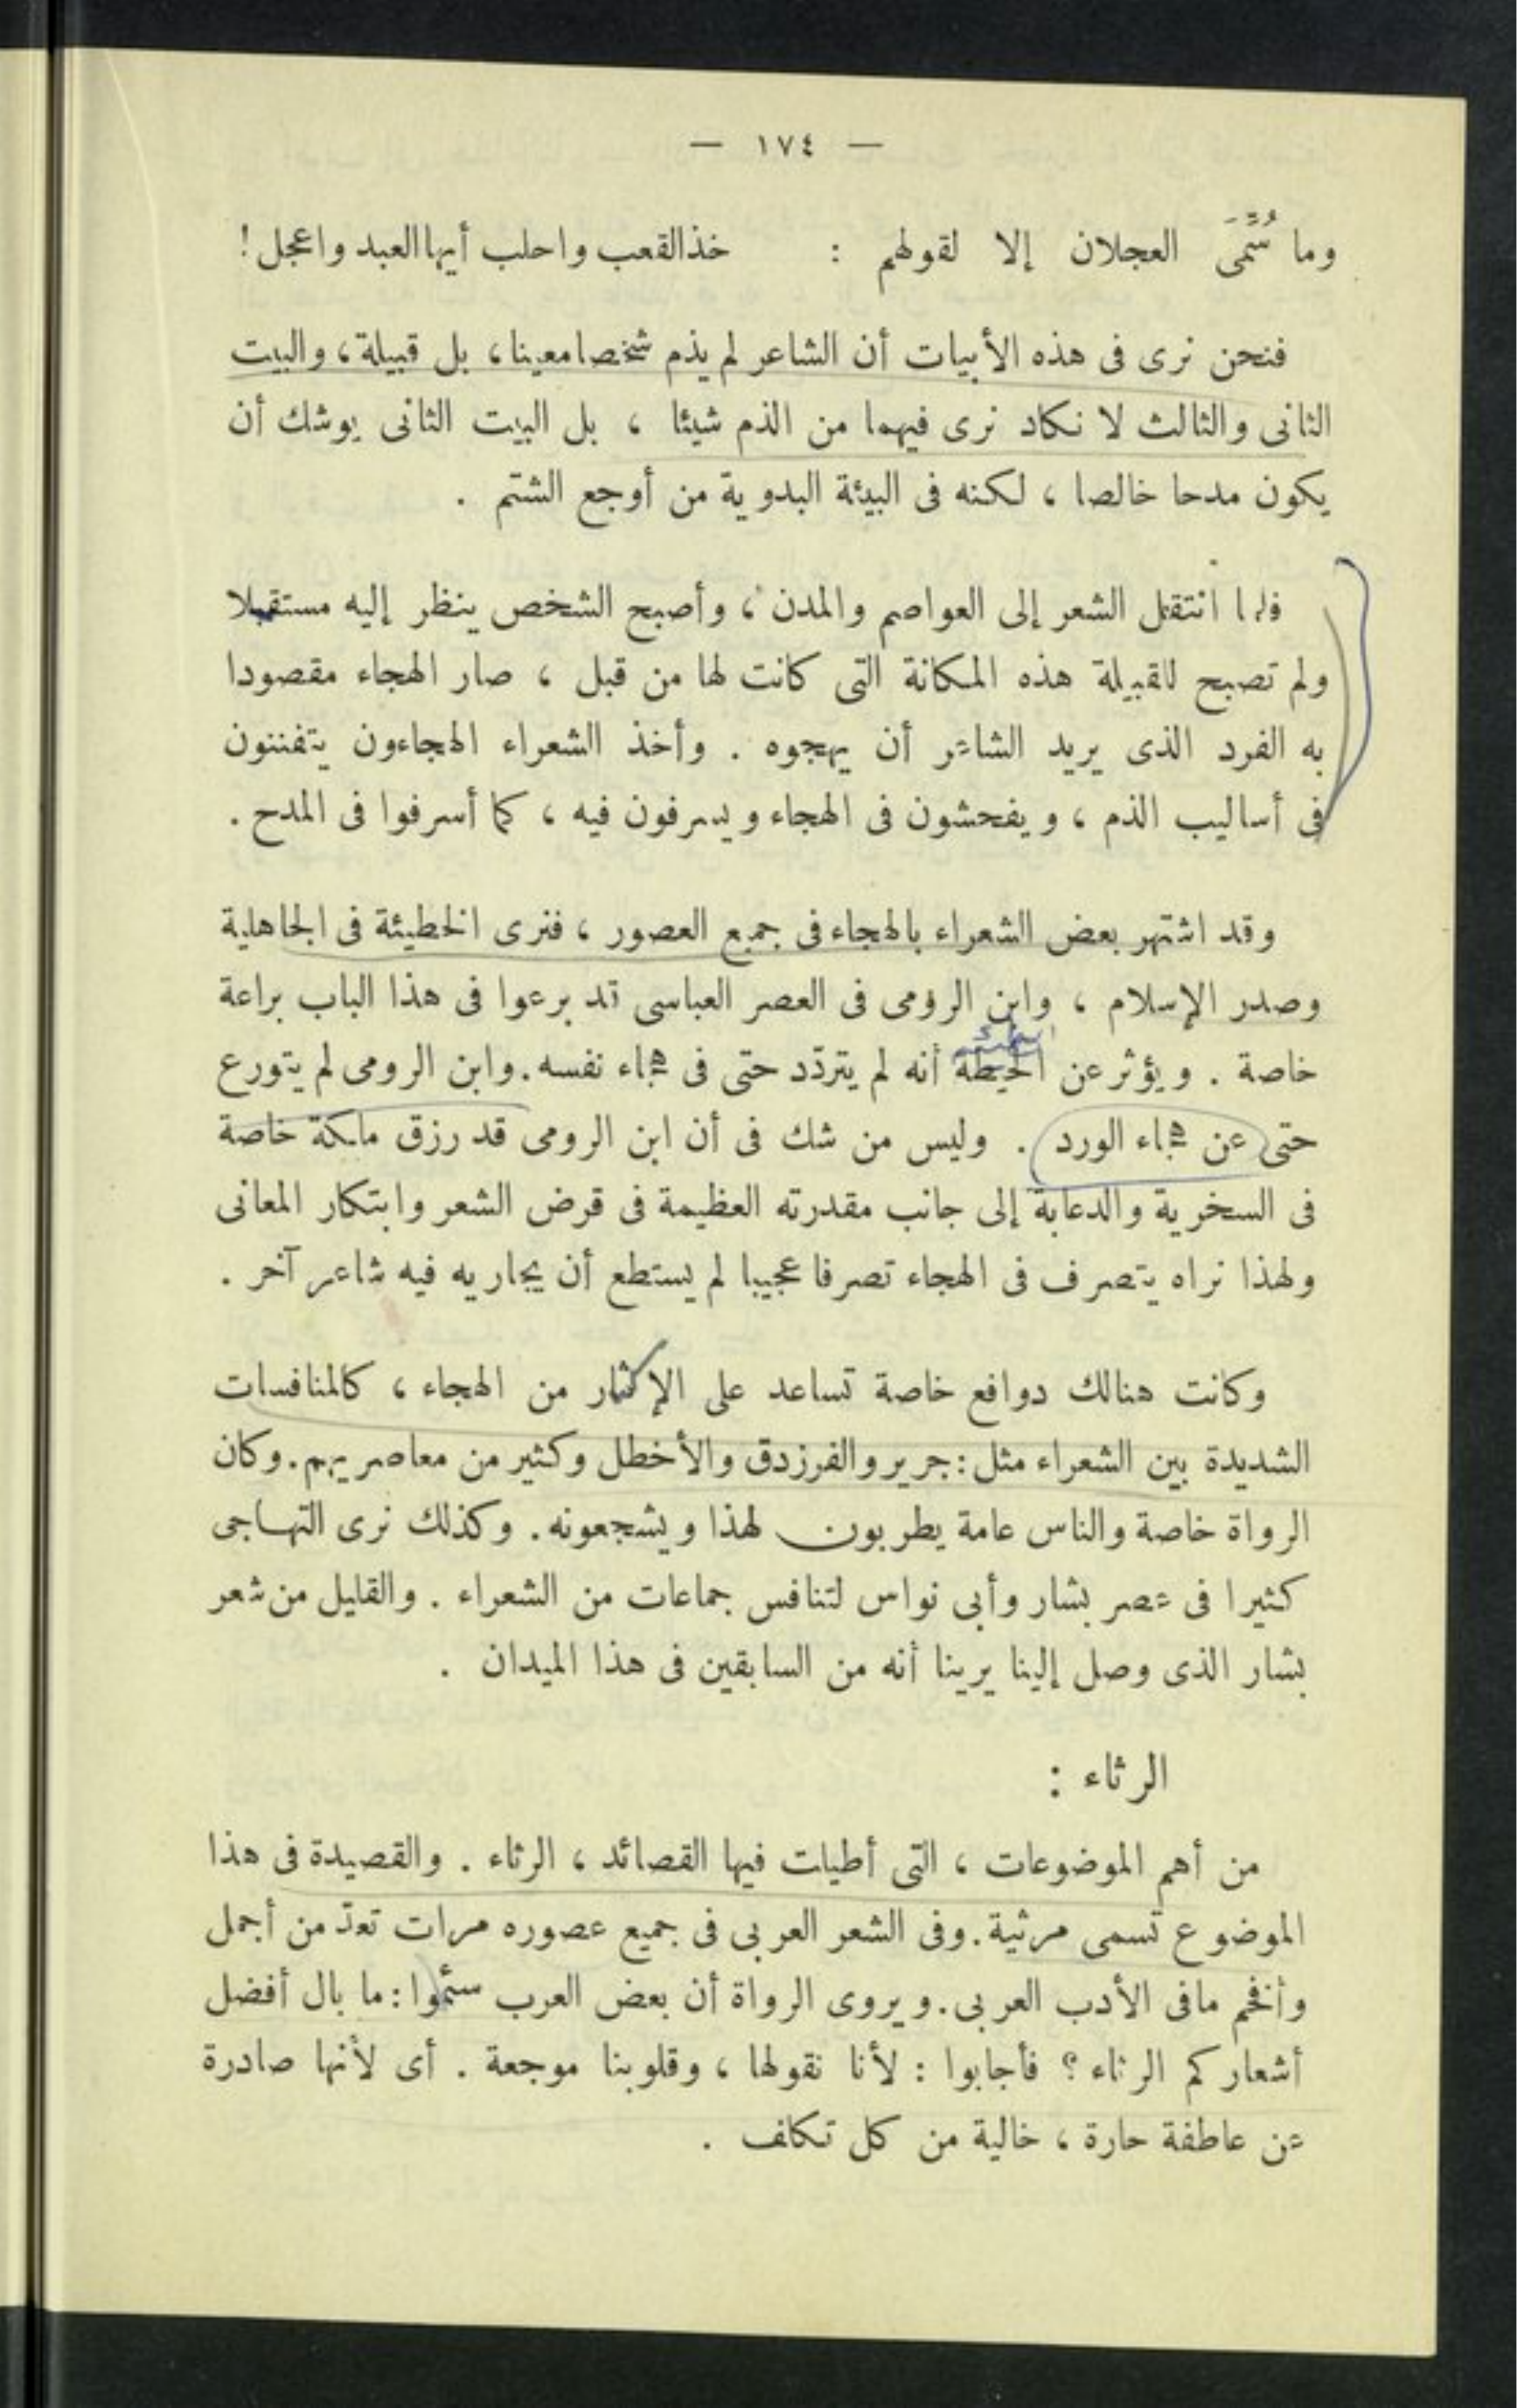 — ١٧٤ —
وما سُمِّىَ العجلان إلا لقولهم : خذ القعب واحلب أيها العبد واعجل !
فنحن نرى فى هذه الأبيات أن الشاعر لم يذم شخصا معينا ، بل قبيلة ، والبيت
الثانى والثالث لا نكاد نرى فيهما من الذم شيئا ، بل البيت الثانى يوشك أن
يكون مدحا خالصا ، لكنه فى البيئة البدوية من أوجع الشتم .
فلما انتقل الشعر إلى العواصم والمدن ، وأصبح الشخص ينظر إليه مستقبلا
ولم تصبح للقبيلة هذه المكانة التى كانت لها من قبل ، صار الهجاء مقصودا
به الفرد الذى يريد الشاعر أن يهجوه . وأخذ الشعراء الهجاءون يتفننون
فى أساليب الذم ، ويفحشون فى الهجاء ويسرفون فيه ، كما أسرفوا فى المدح .
وقد اشتهر بعض الشعراء بالهجاء فى جميع العصور ، فنرى الحطيئة فى الجاهلية
وصدر الإسلام ، وابن الرومى فى العصر العباسى قد برعوا فى هذا الباب براعة
خاصة . ويؤثر عن الحيطة أنه لم يتردّد حتى فى هجاء نفسه . وابن الرومى لم يتورع
حتى عن هجاء الورد . وليس من شك فى أن ابن الرومى قد رزق ملكة خاصة
فى السخرية والدعابة إلى جانب مقدرته العظيمة فى قرض الشعر وابتكار المعانى
ولهذا نراه يتصرف فى الهجاء تصرفا عجيبا لم يستطع أن يجاريه فيه شاعر آخر .
وكانت هنالك دوافع خاصة تساعد على الإكثار من الهجاء ، كالمنافسات
الشديدة بين الشعراء مثل : جرير والفرزدق والأخطل وكثير من معاصريهم . وكان
الرواة خاصة والناس عامة يطربون لهذا ويشجعونه . وكذلك نرى التهاجى
كثيرا فى عصر بشار وأبى نواس لتنافس جماعات من الشعراء . والقليل من شعر
بشار الذى وصل إلينا يرينا أنه من السابقين فى هذا الميدان .
الرثاء :
من أهم الموضوعات ، التى أطيلت فيها القصائد ، الرثاء . والقصيدة فى هذا
الموضوع تسمى مرثية . وفى الشعر العربى فى جميع عصوره مرات تعدّ من أجمل
وأفخم ما فى الأدب العربى . ويروى الرواة أن بعض العرب سئموا : ما بال أفضل
أشعاركم الرثاء ؟ فأجابوا : لأنا نقولها ، وقلوبنا موجعة . أى لأنها صادرة
عن عاطفة حارة ، خالية من كل تكلف .